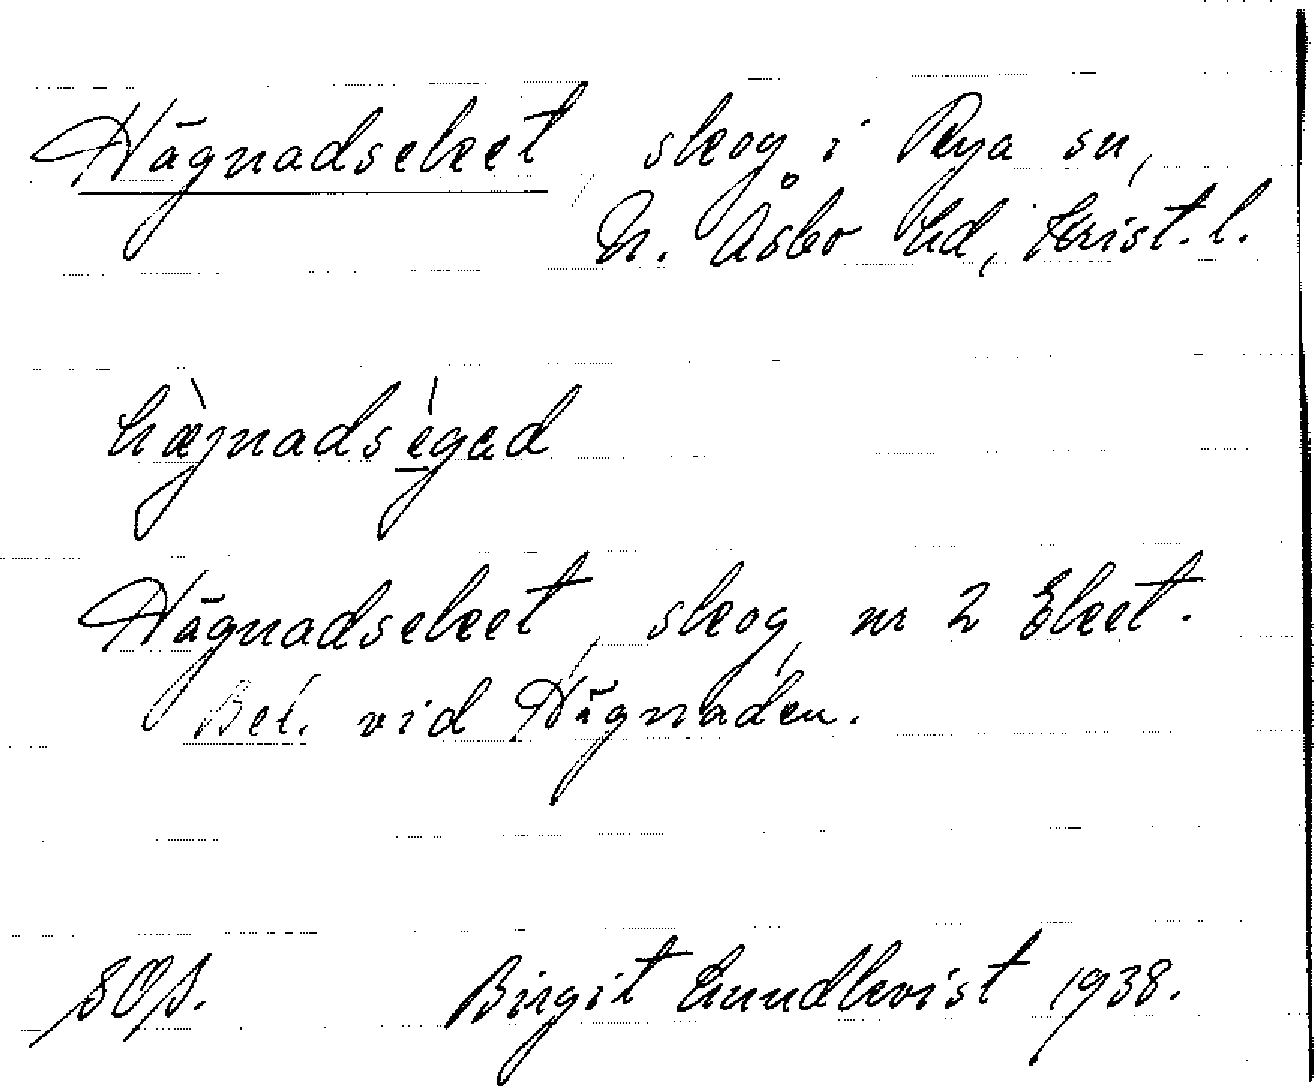 Hägnadseket, skog i Rya sn,
N. Åsbo hd, Krist. l.
hæ̀jnadségəd
Hägnadseket, skog, nr 2 Eket.
Bel. vid Hägnaden.
SOS. Birgit Lundkvist 1938.